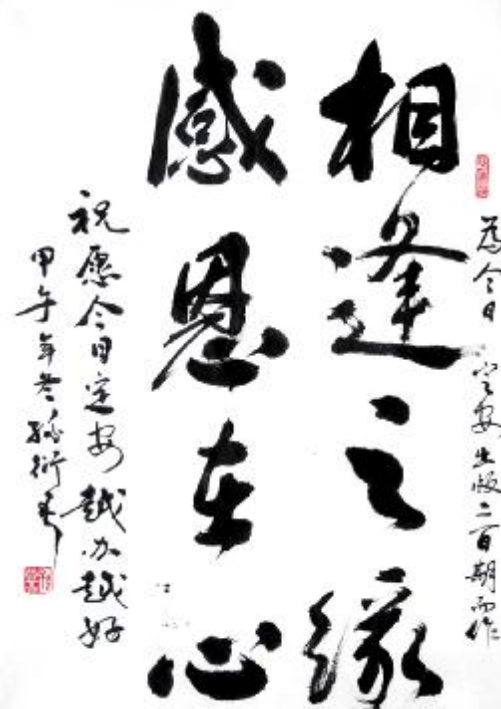 为今日定安出版二百期而作
相逢之缘
感恩在心
祝愿今日定安越办越好
甲午年冬孙衍